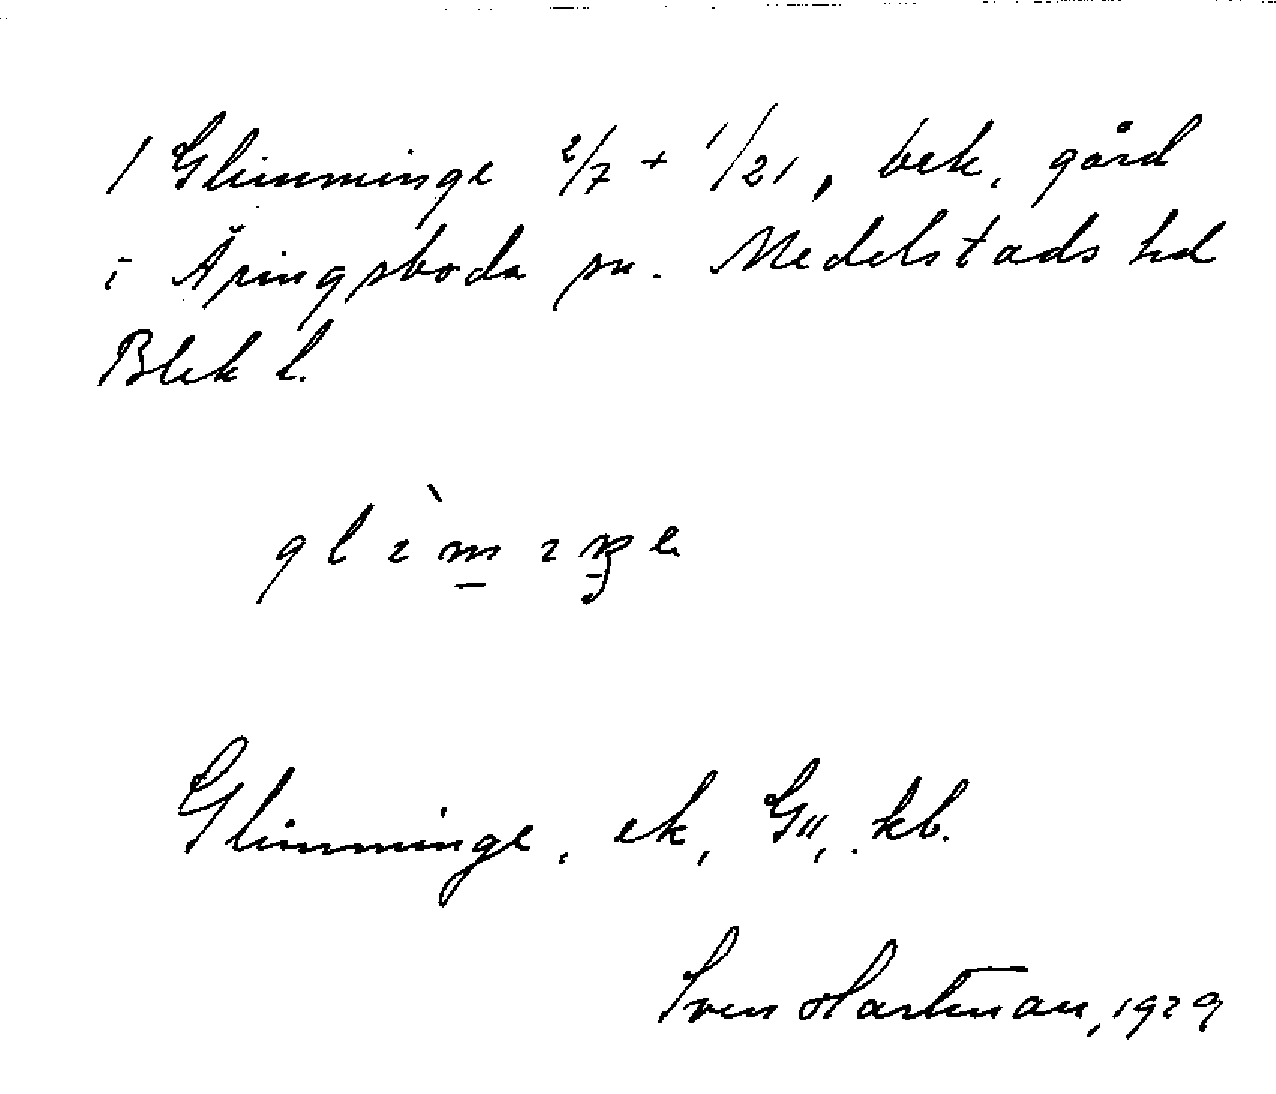 / Glimminge 2/7 + 1/21, bek. gård
i Äspingsboda sn. Medelstads hd
Blek l.
glìmıŋe
Glimminge, ek, G11, kb.
Sven Hartman, 1929